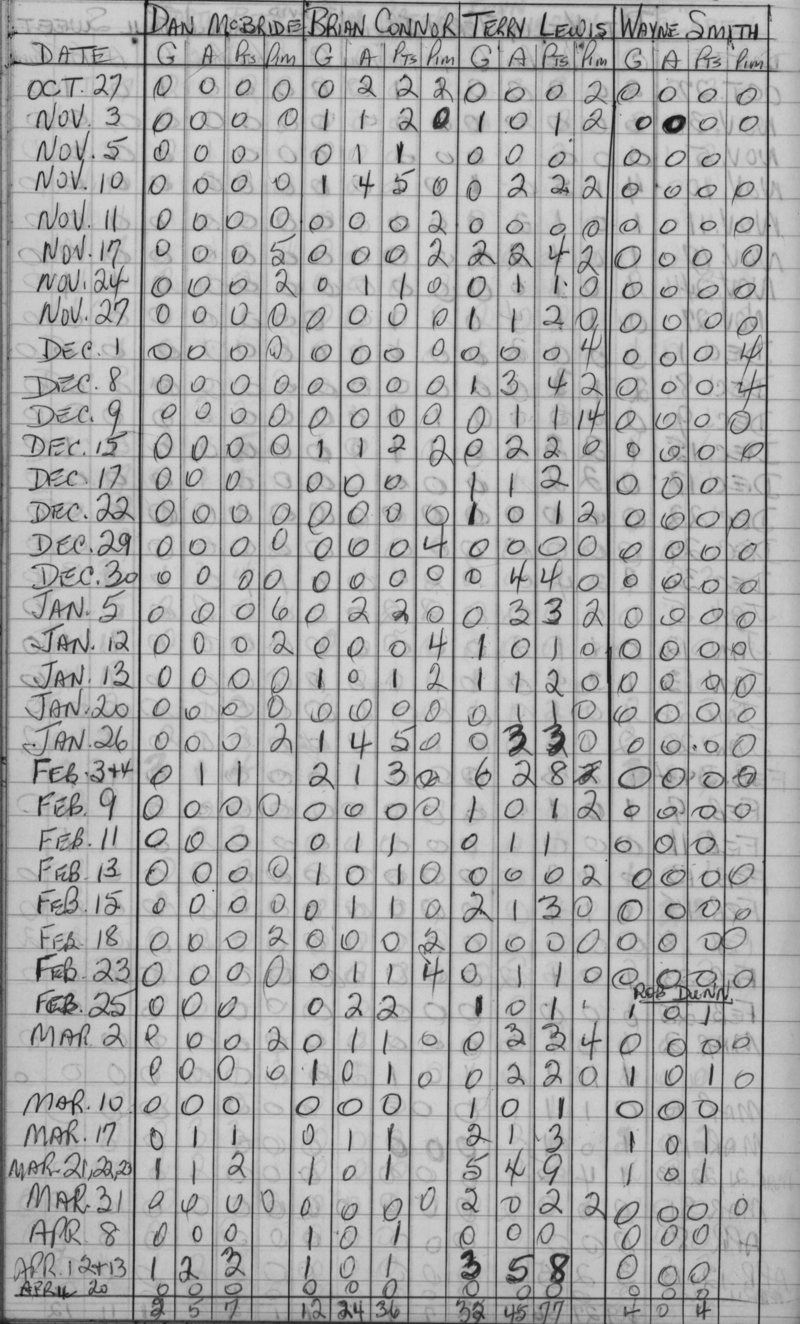 DAN MCBRIDE BRIAN CONNOR TERRY LEWIS WAYNE SMITH
DATE G A Pts Pim G A Pts Pim G A Pts Pim G A Pts Pim
OCT. 27 0 0 0 0 0 2 2 2 0 0 0 2 0 0 0 0
NOV. 3 0 0 0 0 1 1 2 0 1 0 1 2 0 0 0 0
NOV. 5 0 0 0 0 1 1 0 0 0 0 0 0
NOV. 10 0 0 0 0 1 4 5 0 0 2 2 2 0 0 0 0
NOV. 11 0 0 0 0 0 0 0 2 0 0 0 0 0 0 0 0
NOV. 17 0 0 0 5 0 0 0 2 2 2 4 2 0 0 0 0
NOV. 24 0 0 0 2 0 1 1 0 0 1 1 0 0 0 0 0
NOV. 27 0 0 0 0 0 0 0 0 1 1 2 0 0 0 0 0
DEC. 1 0 0 0 0 0 0 0 0 0 0 0 4 0 0 0 4
DEC. 8 0 0 0 0 0 0 0 0 1 3 4 2 0 0 0 4
DEC. 9 0 0 0 0 0 0 0 0 0 1 1 14 0 0 0 0
DEC. 15 0 0 0 0 1 1 2 2 0 2 2 0 0 0 0 0
DEC. 17 0 0 0 0 0 0 1 1 2 0 0 0
DEC. 22 0 0 0 0 0 0 0 0 1 0 1 2 0 0 0 0
DEC. 29 0 0 0 0 0 0 0 4 0 0 0 0 0 0 0 0
DEC. 30 0 0 0 0 0 0 0 0 0 4 4 0 0 0 0 0
JAN. 5 0 0 0 6 0 2 2 0 0 3 3 2 0 0 0 0
JAN. 12 0 0 0 2 0 0 0 4 1 0 1 0 0 0 0 0
JAN. 13 0 0 0 0 1 0 1 2 1 1 2 0 0 0 0 0
JAN. 20 0 0 0 0 0 0 0 0 0 1 1 0 0 0 0 0
JAN. 26 0 0 0 2 1 4 5 0 0 3 3 0 0 0 0 0
FEB. 3+4 0 1 1 2 1 3 0 6 2 8 0 0 0 0
FEB. 9 0 0 0 0 0 0 0 0 1 0 1 2 0 0 0 0
FEB. 11 0 0 0 0 1 1 0 1 1 0 0 0
FEB. 13 0 0 0 0 1 0 1 0 0 0 0 2 0 0 0 0
FEB. 15 0 0 0 0 0 1 1 0 2 1 3 0 0 0 0 0
FEB. 18 0 0 0 2 0 0 0 2 0 0 0 0 0 0 0 0
FEB. 23 0 0 0 0 0 1 1 4 0 1 1 0 0 0 0 0
ROB DUNN
FEB. 25 0 0 0 0 2 2 1 0 1 1 0 1
MAR. 2 0 0 0 2 0 1 1 0 0 3 3 4 0 0 0 0
0 0 0 0 1 0 1 0 0 2 2 0 1 0 1 0
MAR. 10 0 0 0 0 0 0 1 0 1 0 0 0
MAR. 17 0 1 1 0 1 1 2 1 3 1 0 1
MAR. 21, 22, 23 1 1 2 1 0 1 5 4 9 1 0 1
MAR. 31 0 0 0 0 0 0 0 0 2 0 2 2 0 0 0 0
APR. 8 0 0 0 1 0 1 0 0 0 0 0 0
APR. 12+13 1 2 3 1 0 1 3 5 8 0 0 0
APRIL 20 0 0 0 0 0 0 0 0 0 0 0 0
2 5 7 12 24 36 32 45 77 4 0 4